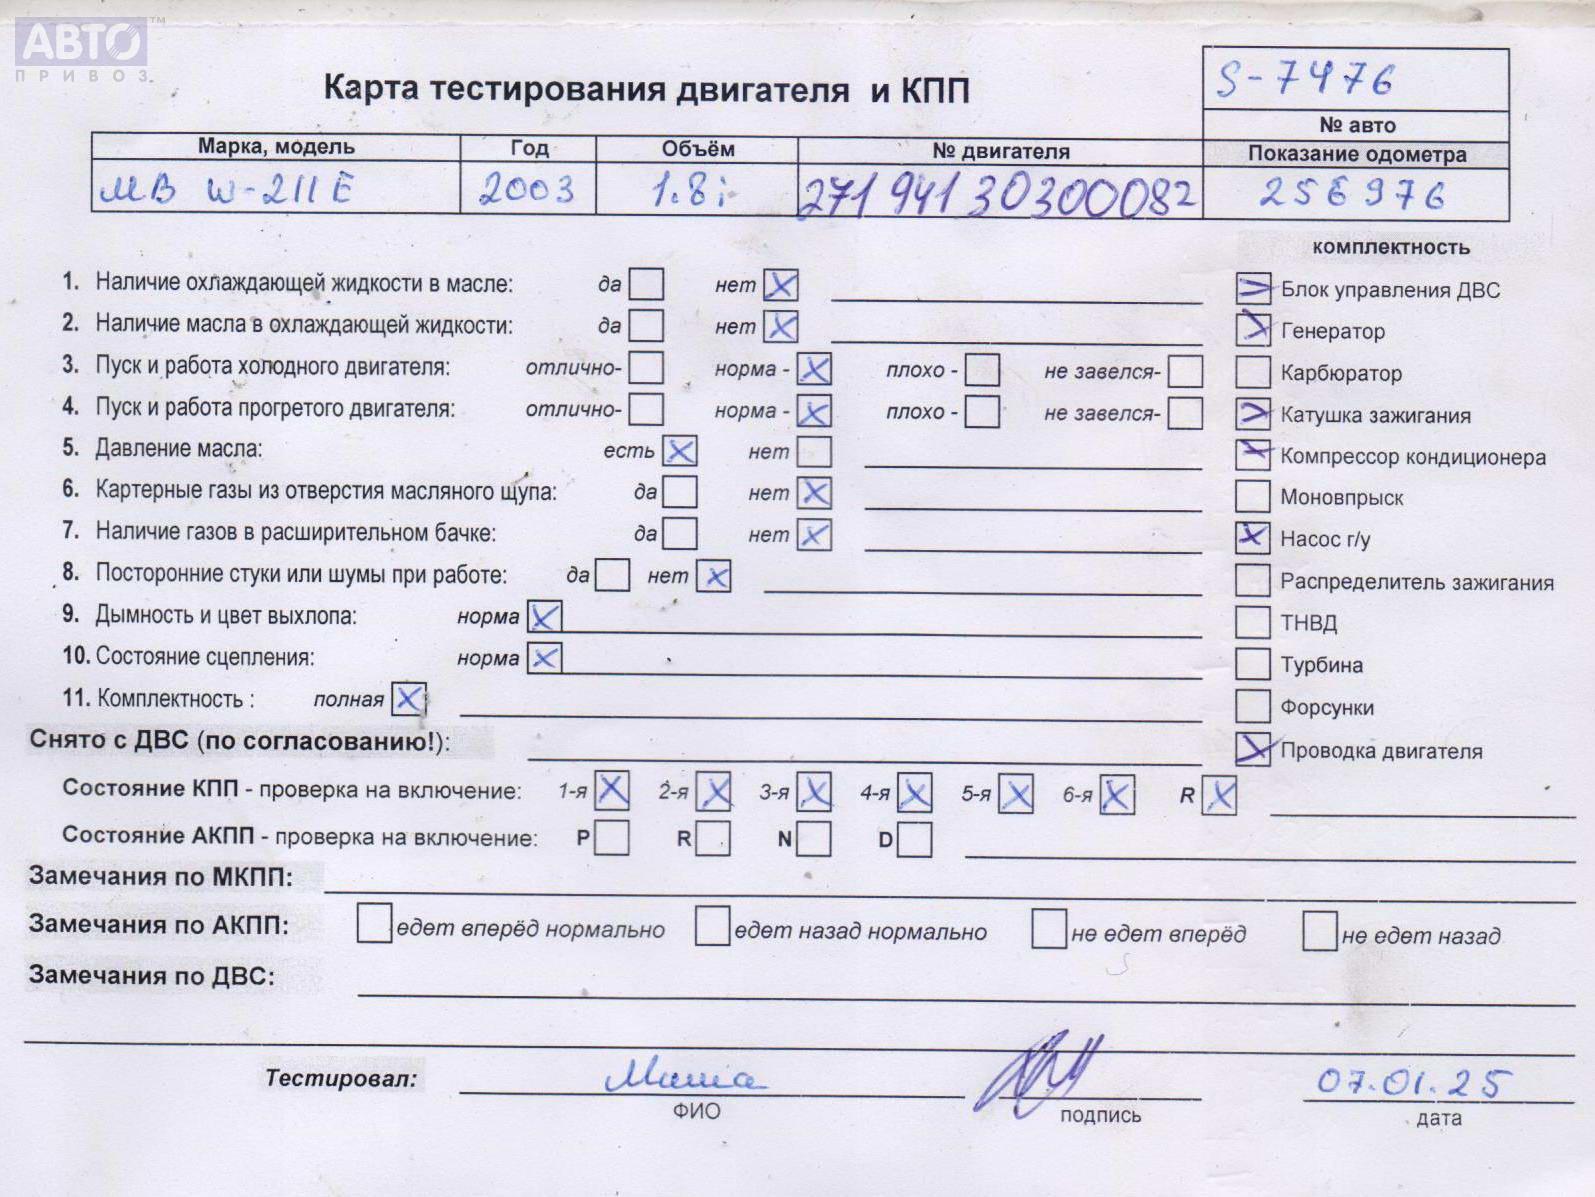 АВТО™
ПРИВОЗ.
Карта тестирования двигателя и КПП
S-7476
№ авто
Марка, модель Год Объём № двигателя Показание одометра
МВ W-211 E 2003 1.8i 271 941 30300082 256976
комплектность
1. Наличие охлаждающей жидкости в масле: да нет X
Блок управления ДВС
2. Наличие масла в охлаждающей жидкости: да нет X
Генератор
3. Пуск и работа холодного двигателя: отлично- норма - X плохо - не завелся-
Карбюратор
4. Пуск и работа прогретого двигателя: отлично- норма - X плохо - не завелся-
Катушка зажигания
5. Давление масла: есть X нет
Компрессор кондиционера
6. Картерные газы из отверстия масляного щупа: да нет X
Моновпрыск
7. Наличие газов в расширительном бачке: да нет X
X Насос г/у
8. Посторонние стуки или шумы при работе: да нет X
Распределитель зажигания
9. Дымность и цвет выхлопа: норма X
ТНВД
10. Состояние сцепления: норма X
Турбина
11. Комплектность : полная X
Форсунки
Снято с ДВС (по согласованию!):
X Проводка двигателя
Состояние КПП - проверка на включение: 1-я X 2-я X 3-я X 4-я X 5-я X 6-я X R X
Состояние АКПП - проверка на включение: P R N D
Замечания по МКПП:
Замечания по АКПП: едет вперёд нормально едет назад нормально не едет вперёд не едет назад
Замечания по ДВС:
Тестировал: Миша 07.01.25
ФИО подпись дата